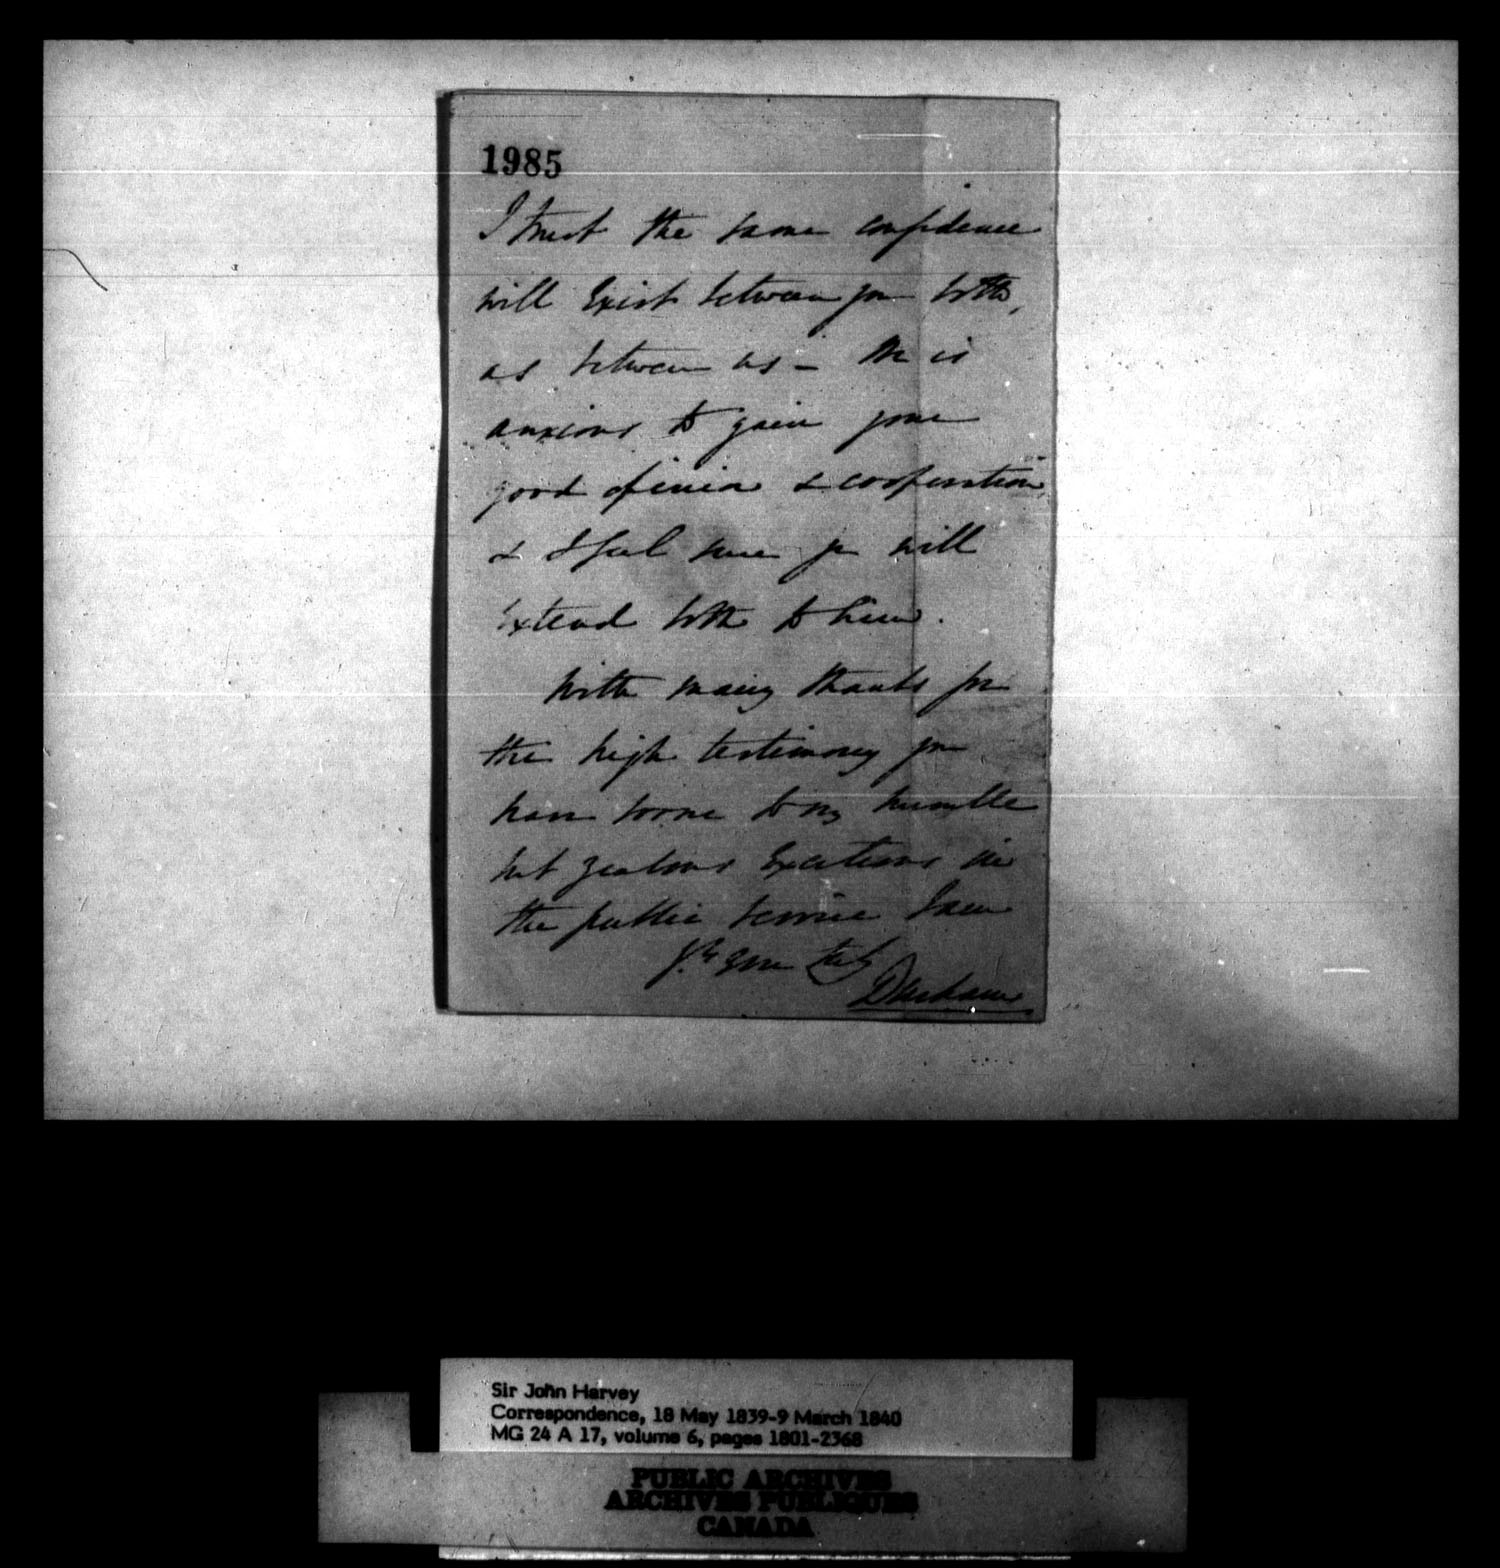 1985
I trust the same confidence
will exist between you both,
as between us - He is
anxious to gain your
good opinion & cooperation,
& I feel sure you will
extend both to him.
With many thanks for
the high testimony you
have borne to my humble
but zealous exertions in
the public service I am
Durham
Sir John Harvey
Correspondence, 18 May 1839-9 March 1840
MG 24 A 17, volume 6, pages 1801-2368
PUBLIC ARCHIVES
ARCHIVES PUBLIQUES
CANADA